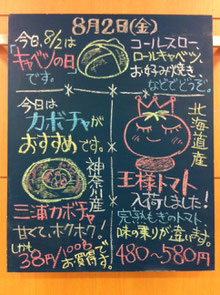 8月2日(金)
今日、8/2は
「キャベツの日」
です。
コールスロー、
ロールキャベツ、
お好み焼き
などでどうぞ。
今日は
カボチャが
おすすめです。
神奈川産
三浦カボチャ
甘くて、ホクホク。
しかも
38円/100g
お買得です。
北海道産
王様トマト
入荷しました!
完熟もぎのトマト、
味の乗りが違います。
480~580円